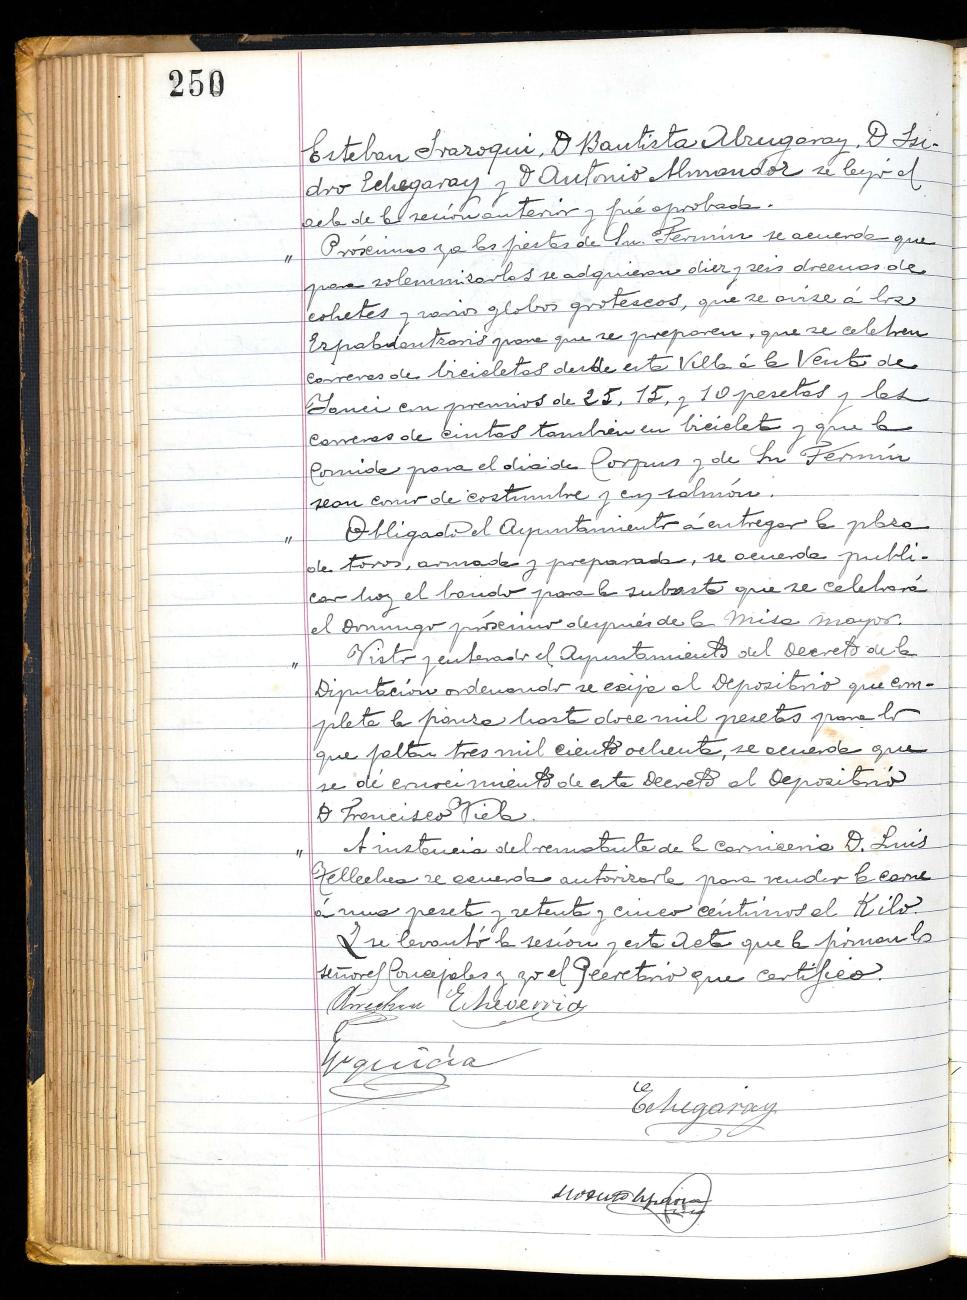 250
Esteban Irazoqui, D Bautista Abrugaray, D Isi-
dro Echegaray y D Antonio Almandoz se leyó el
acta de la sesión anterior y fué aprobada.
" Próximas ya las fiestas de Sn. Fermín se acuerda que
para solemnizarlas se adquieran diez y seis docenas de
cohetes y varios globos grotescos, que se avise á los
Ezpatadantzaris para que se preparen, que se celebren
carreras de bicicletas desde esta Villa á la Venta de
Yanci con premios de 25, 15, y 10 pesetas y las
carreras de cintas también en bicicleta y que la
comida para el dia de Corpus y de Sn Fermín
sean como de costumbre y con salmón.
" Obligado el Ayuntamiento á entregar la plaza
de toros, armada y preparada, se acuerda publi-
car hoy el bando para la subasta que se celebrará
el Domingo próximo después de la Misa mayor.
" Visto y enterado el Ayuntamiento del Decreto de la
Diputación ordenando se exija al Depositario que com-
pleta la fianza hasta doce mil pesetas para lo
que faltan tres mil ciento ochenta, se acuerda que
se dé conocimiento de este Decreto al Depositario
D Francisco Viela.
" A instancia del rematante de la carniceria D. Luis
Tellechea se acuerda autorizarle para vender la carne
á una peseta y setenta y cinco céntimos el Kilo.
Y se levantó la sesión y esta Acta que la firman los
señores Concejales y yo el Secretario que certifico.
Echeverria
Echegaray